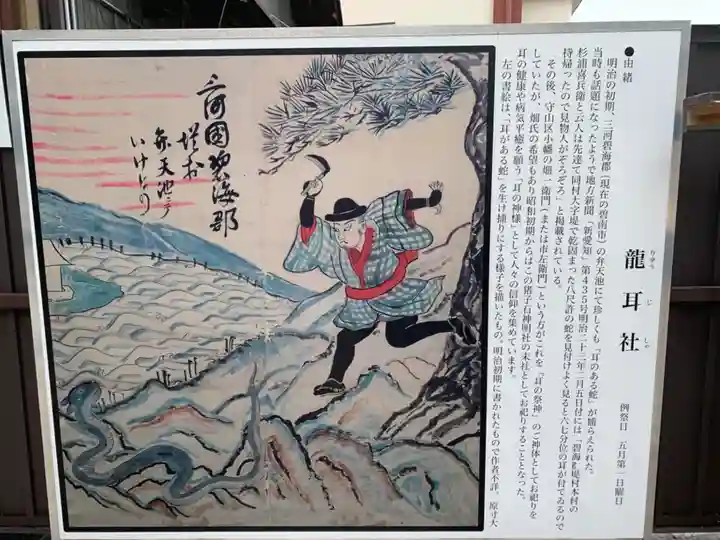 龍耳社
りゅう じ しゃ
例祭日 五月第一日曜日
●由緒
明治の初期、三河碧海郡(現在の碧南市)の弁天池にて珍しくも「耳のある蛇」が捕らえられた。
当時も話題になったようで地方新聞「新愛知」第435号明治二十三年二月五日付には「碧海郡堤村本村の
杉浦喜兵衛と云人は先達て同村大字堤で乾固まった八尺許の蛇を見付けよく見ると六七分位の耳が付てゐるので
持帰ったので見物人がぞろぞろ」と掲載されている。
その後、守山区小幡の畑一衛門(または市左衛門)という方がこれを「耳の祭神」のご神体としてお祀りを
していたが、畑氏の希望もあり昭和初期からはこの猪子石神明社の末社としてお祀りすることとなった。
耳の健康や病気平癒を願う「耳の神様」として人々の信仰を集めています。
左の書絵は、「耳がある蛇」を生け捕りにする様子を描いたもの。明治初期に書かれたもので作者不詳。原寸大
三河國碧海郡
堤村
弁天池ニテ
いけどり